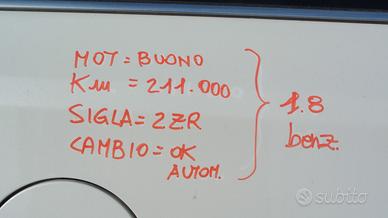 MOT = BUONO
Km = 211.000
SIGLA = 2ZR
CAMBIO = OK
AUTOM.
1.8
benz.
subito